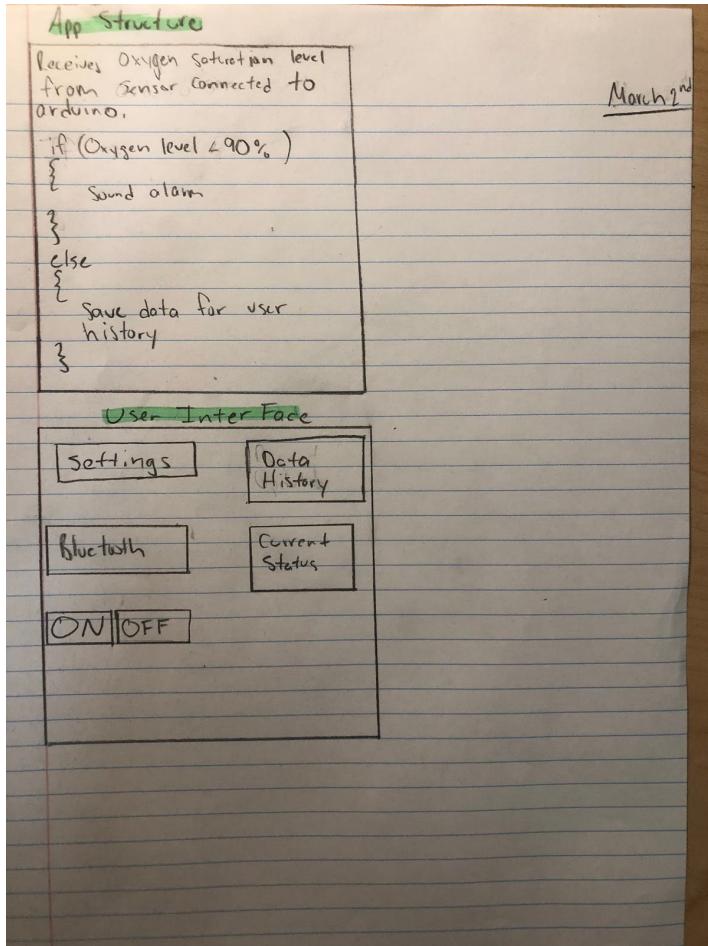 App Structure
Receives Oxygen Saturation level
from Sensor Connected to
arduino.
March 2nd
if (Oxygen level < 90%)
{
Sound alarm
}
else
{
Save data for user
history
}
User InterFace
Settings
Data
History
Bluetooth
Current
Status
ON OFF